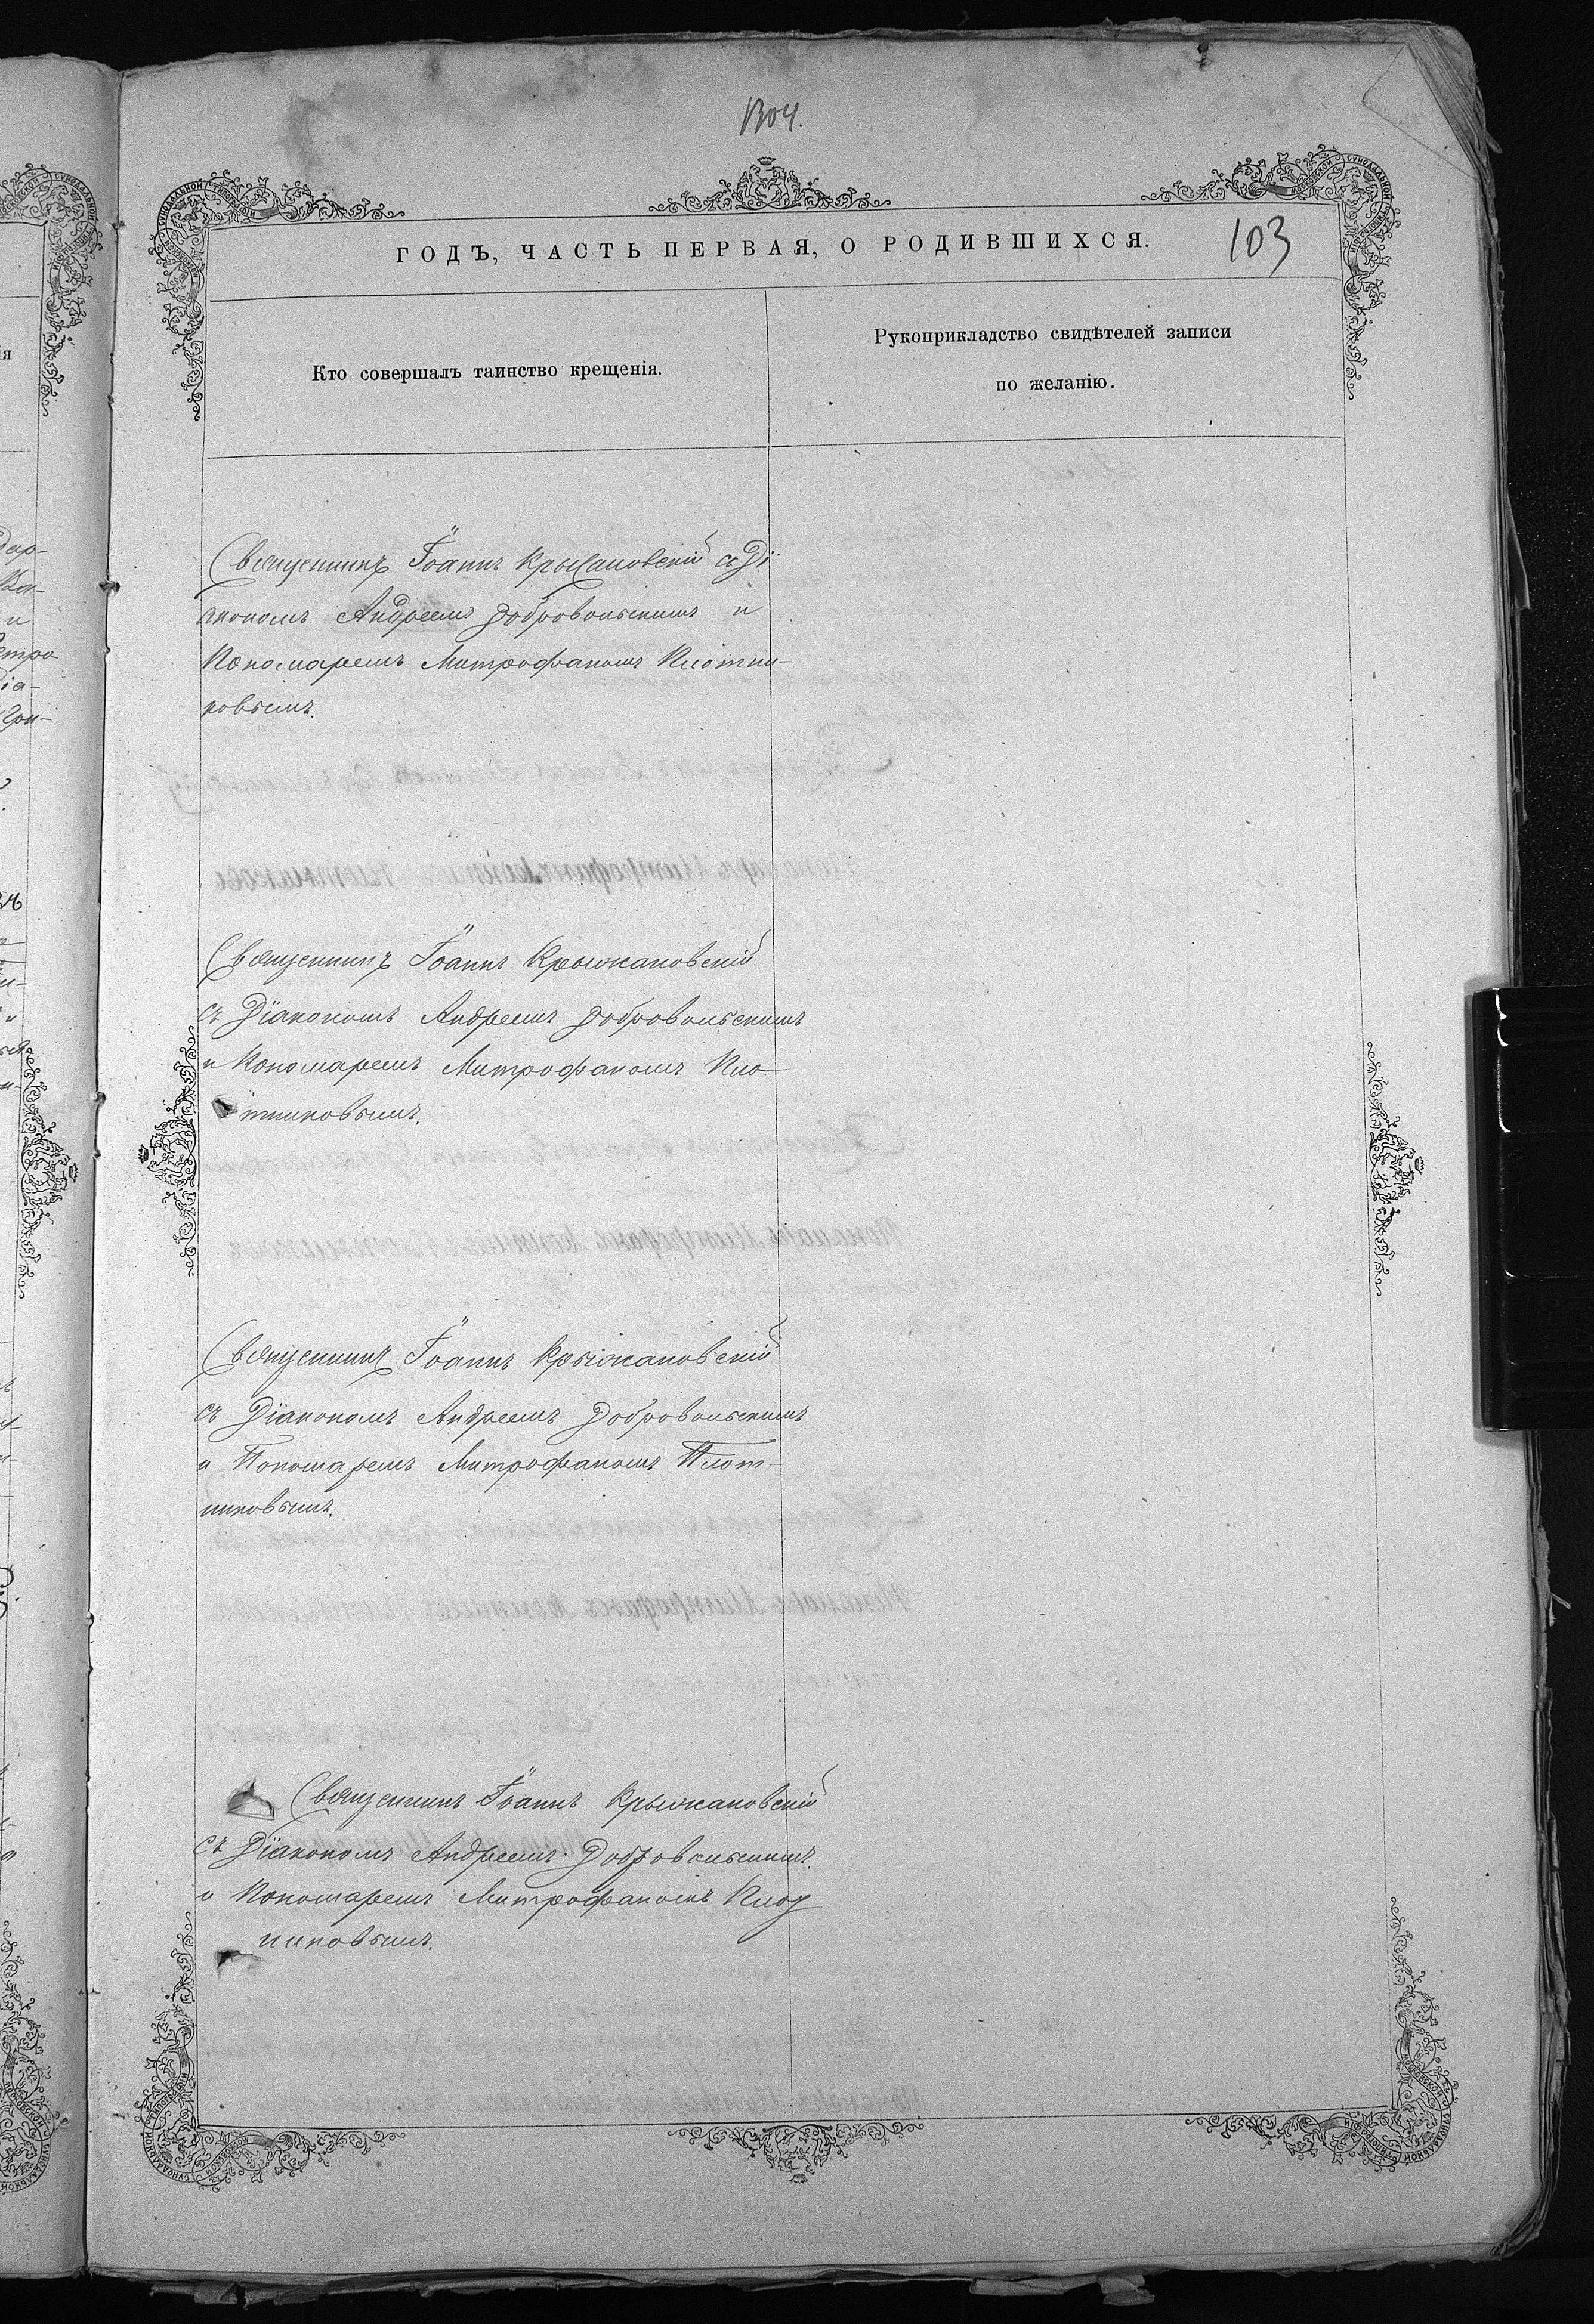 1304.
ГОДЪ, ЧАСТЬ ПЕРВАЯ, О РОДИВШИХСЯ.
103
Кто совершалъ таинство крещенія.
Рукоприкладство свидѣтелей записи
по желанію.
Священникъ Іоаннъ Крыжановскій съ Ді
акономъ Андреемъ Добровольскимъ и
Пономаремъ Митрофаномъ Плотни-
ковымъ.
Священникъ Іоаннъ Крыжановскій
съ Діакономъ Андреемъ Добровольскимъ
и Пономаремъ Митрофаномъ Пло-
тниковымъ.
Священникъ Іоаннъ Крыжановскій
съ Діакономъ Андреемъ Добровольскимъ
и Пономаремъ Митрофаномъ Плот-
никовымъ.
Священникъ Іоаннъ Крыжановскій
съ Діакономъ Андреемъ Добровольскимъ
и Пономаремъ Митрофаномъ Плот
никовымъ.